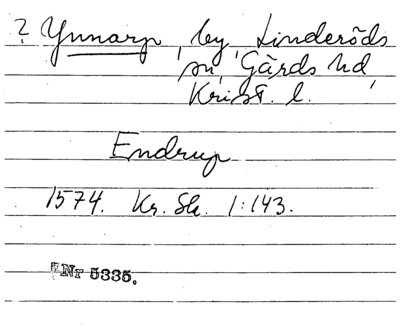 ? Ynnarp, by, Linderöds
sn, Gärds hd,
Krist. l.
Endrup
1574. Kr. Sk. 1:143.
Nr 5335.